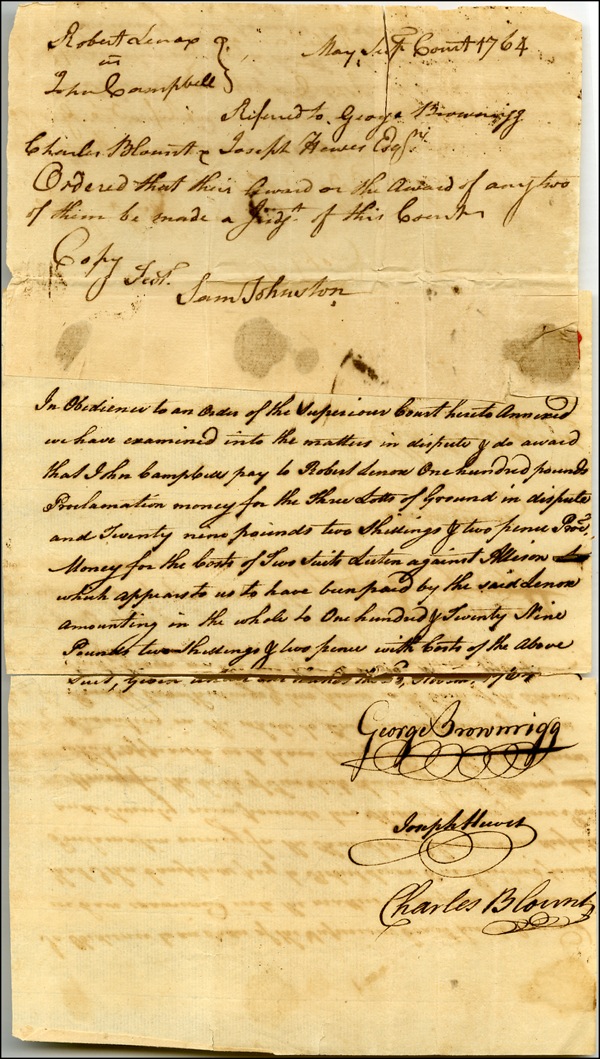 Robert Lenox
vs
John Campbell
May Supr Court 1764
Referred to George Brownrigg
Charles Blount & Joseph Hewes Esqrs
Ordered that their Award or the Award of any two
of them be made a Judgt of this Court
Copy
Test.
Sam Johnston
In Obedience to an Order of the Superiour Court hereto Annexed
we have examined into the matters in dispute & do award
that John Campbell pay to Robert Lenox One hundred pounds
Proclamation money for the Three Lotts of Ground in dispute
and Twenty nine pounds two Shillings & two pence Procn
Money for the Costs of Two Suits against Allison
which appears to us to have been paid by the said Lenox
amounting in the whole to One hundred & Twenty Nine
Pounds two Shillings & two pence with Costs of the Above
Suit, Given
George Brownrigg
Joseph Hewes
Charles Blount